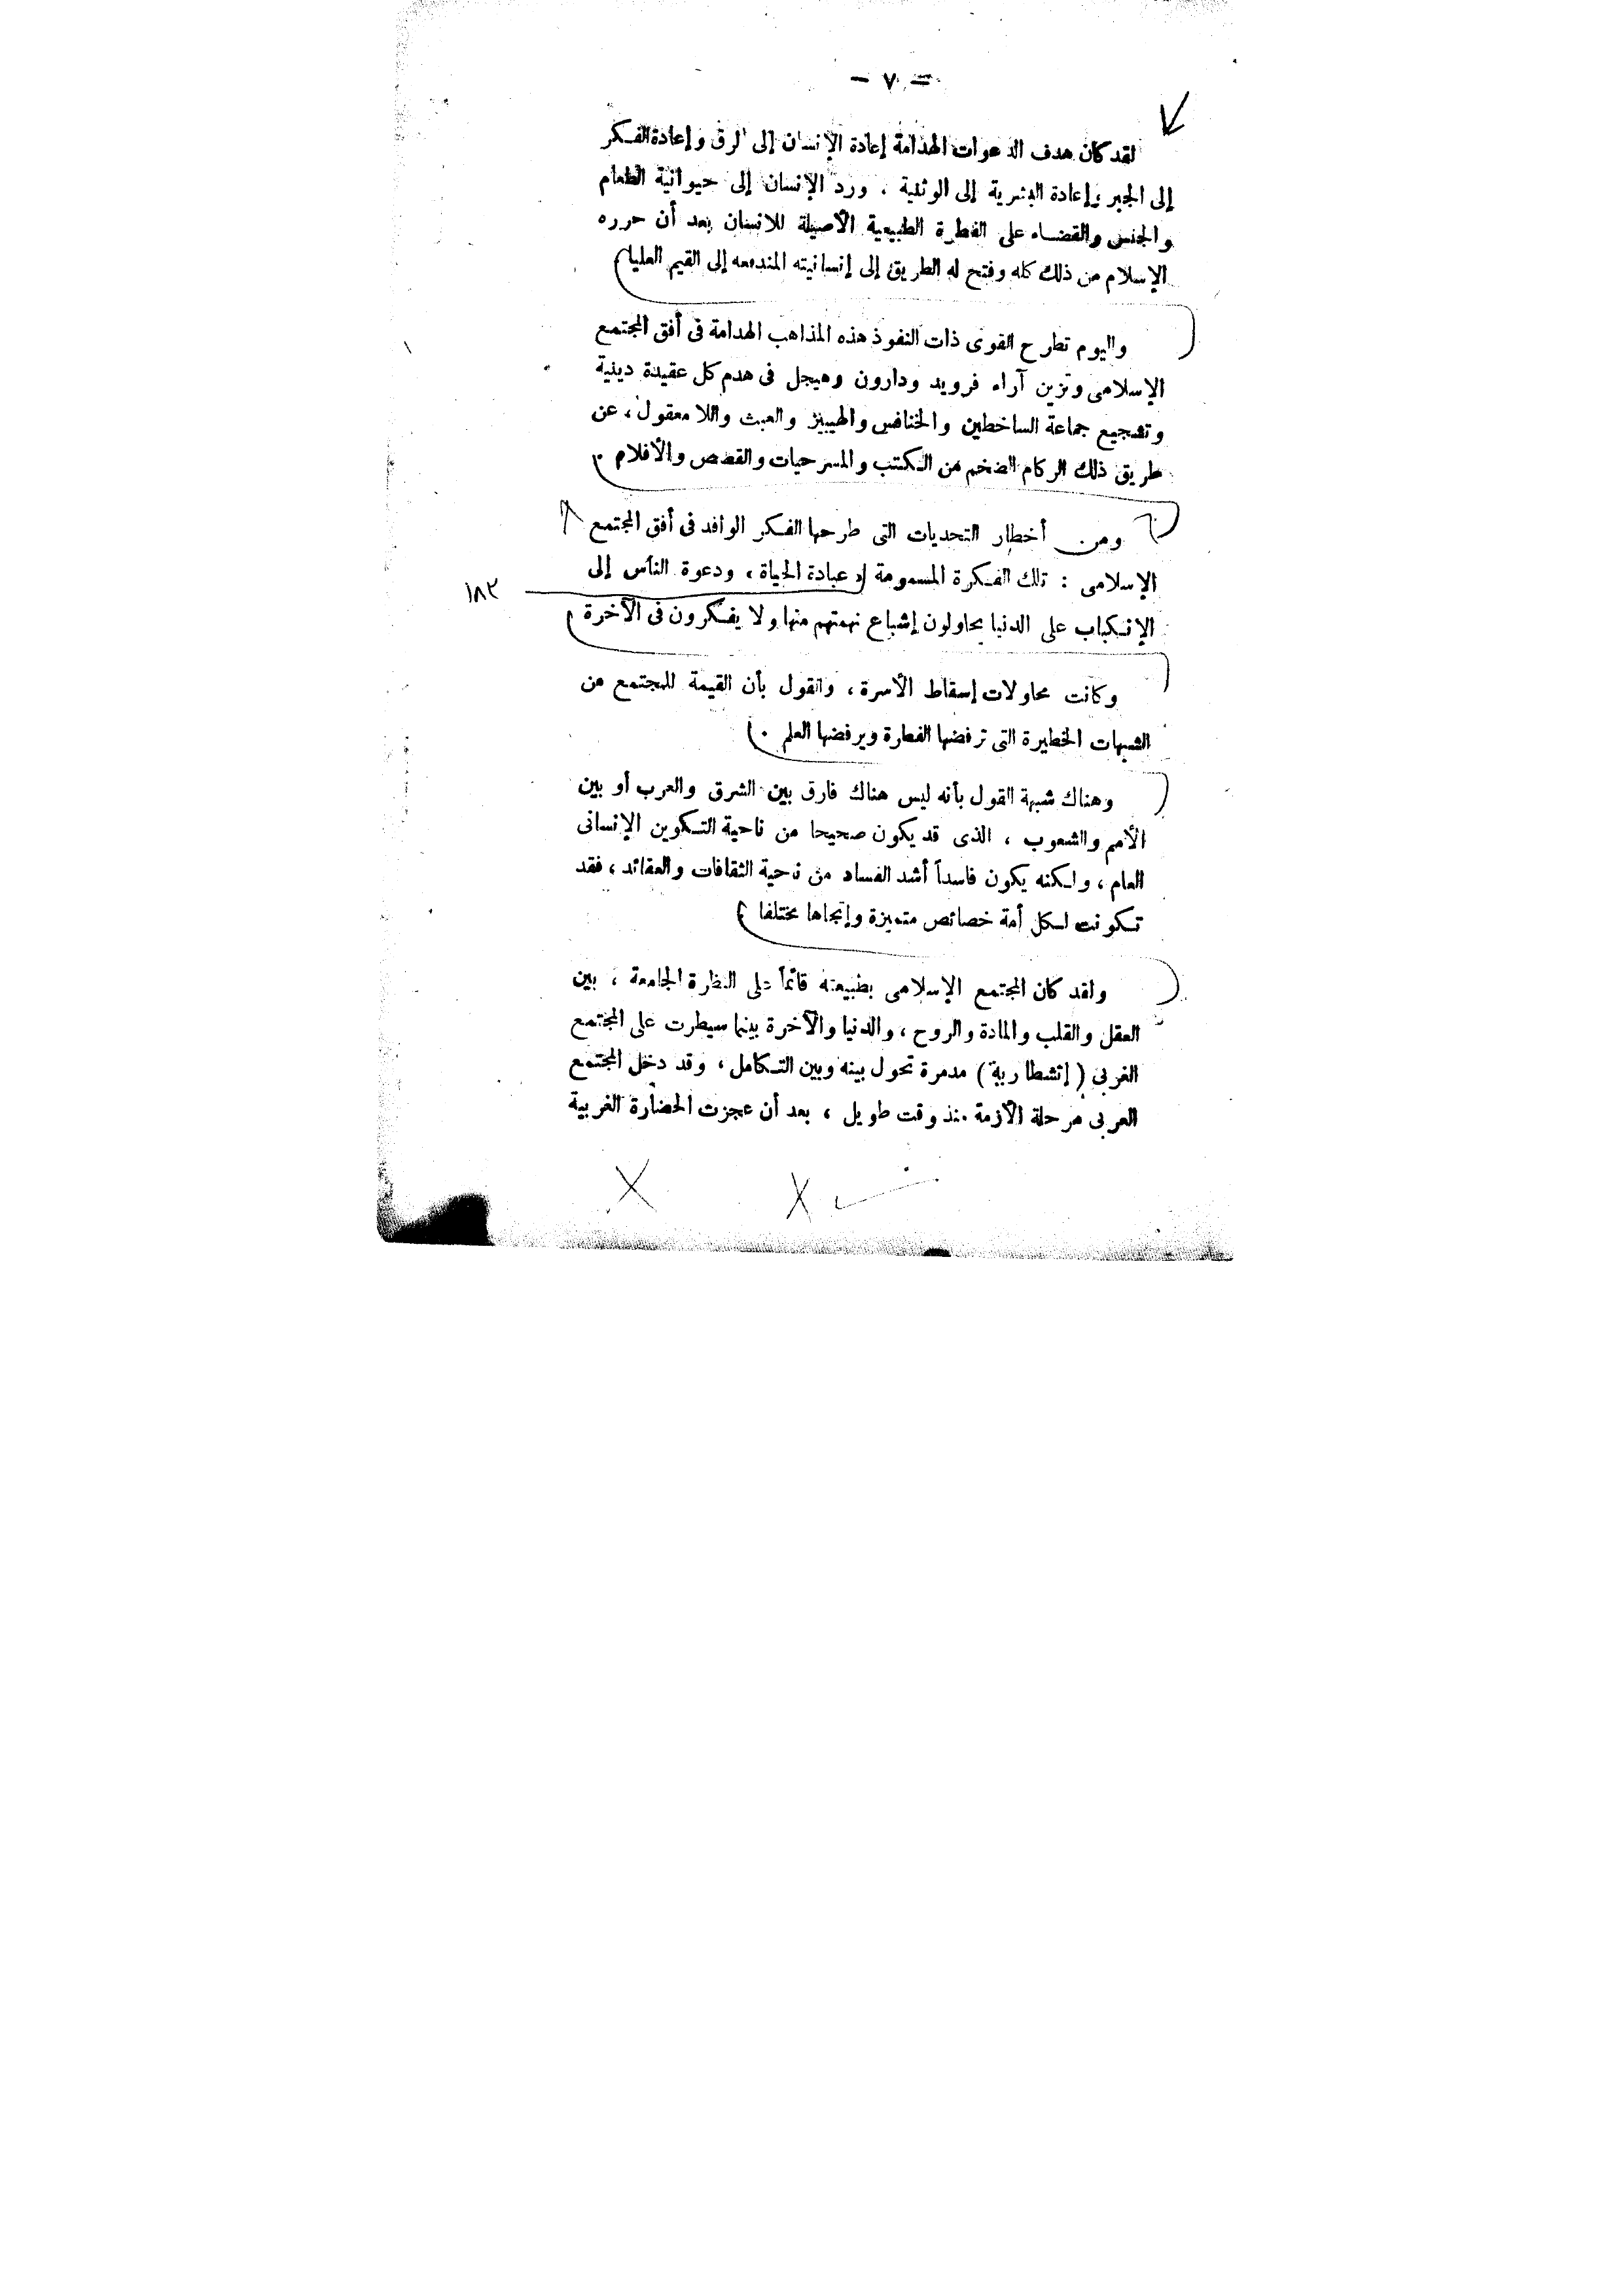 - ٧ -
لقد كان هدف الدعوات الهدامة إعادة الإنسان إلى الرق وإعادة الفكر
إلى الجبر وإعادة البشرية إلى الوثنية . ورد الإنسان إلى حيوانية الطعام
والجنس والقضاء على الفطرة الطبيعية الأصيلة للانسان بعد أن حرره
الإسلام من ذلك كله وفتح له الطريق إلى إنسانيته المندفعه إلى القيم العليا
واليوم تطرح القوى ذات النفوذ هذه المذاهب الهدامة فى أفق المجتمع
الإسلامى وتزين آراء فرويد ودارون وهيجل فى هدم كل عقيدة دينية
وتشجيع جماعة الساخطين والخنافس والهيبيز والعبث واللا معقول ، عن
طريق ذلك الركام الضخم من الكتب والمسرحيات والقصص والأفلام .
ومن أخطار التحديات التى طرحها الفكر الوافد فى أفق المجتمع
الإسلامى : تلك الفكرة المسمومة لعبادة الحياة ، ودعوة الناس إلى
١٨٢
الإنكباب على الدنيا يحاولون إشباع نهمتهم منها ولا يفكرون فى الآخرة
وكانت محاولات إسقاط الأسرة ، والقول بأن القيمة للمجتمع من
الشبهات الخطيرة التى ترفضها الفطرة ويرفضها العلم .
وهناك شبهة القول بأنه ليس هناك فارق بين الشرق والعرب أو بين
الأمم والشعوب ، الذى قد يكون صحيحا من ناحية التكوين الإنسانى
العام ، ولكنه يكون فاسداً أشد الفساد من ناحية الثقافات والعقائد ، فقد
تكونت لكل أمة خصائص متميزة وإتجاها مختلفا
ولقد كان المجتمع الإسلامى بطبيعته قائماً على النظرة الجامعة ، بين
العقل والقلب والمادة والروح ، والدنيا والآخرة بينما سيطرت على المجتمع
الغربى ( إنشطارية ) مدمرة تحول بينه وبين التكامل ، وقد دخل المجتمع
العربى مرحلة الأزمة منذ وقت طويل ، بعد أن عجزت الحضارة الغربية